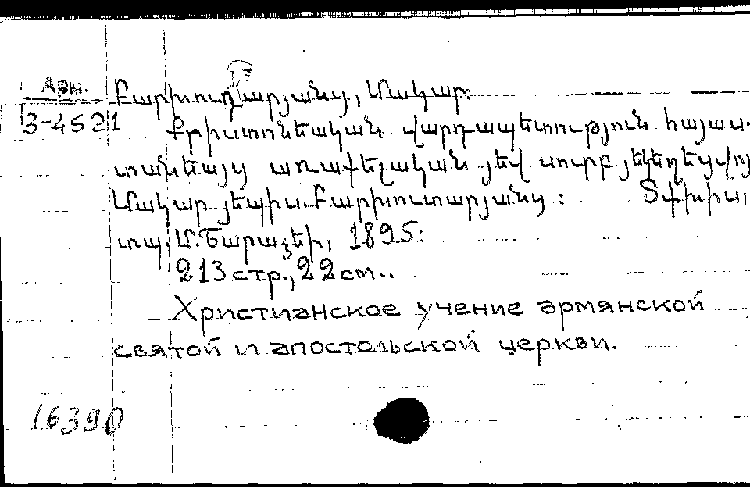 Арм.
3-4521
Բարխուդարյանց, Մակար.
Քրիստոնեական վարդապետություն հայաս-
տանեայց առաքելական յեվ սուրբ յեկեղեցվո
Մակար յեպիս. Բարխուտարյանց: Տփխիս,
տպ. Մ. Շարաձեի, 1895:
213 стр., 22 ст..
Христианское учение армянской
святой и апостольской церкви.
16390